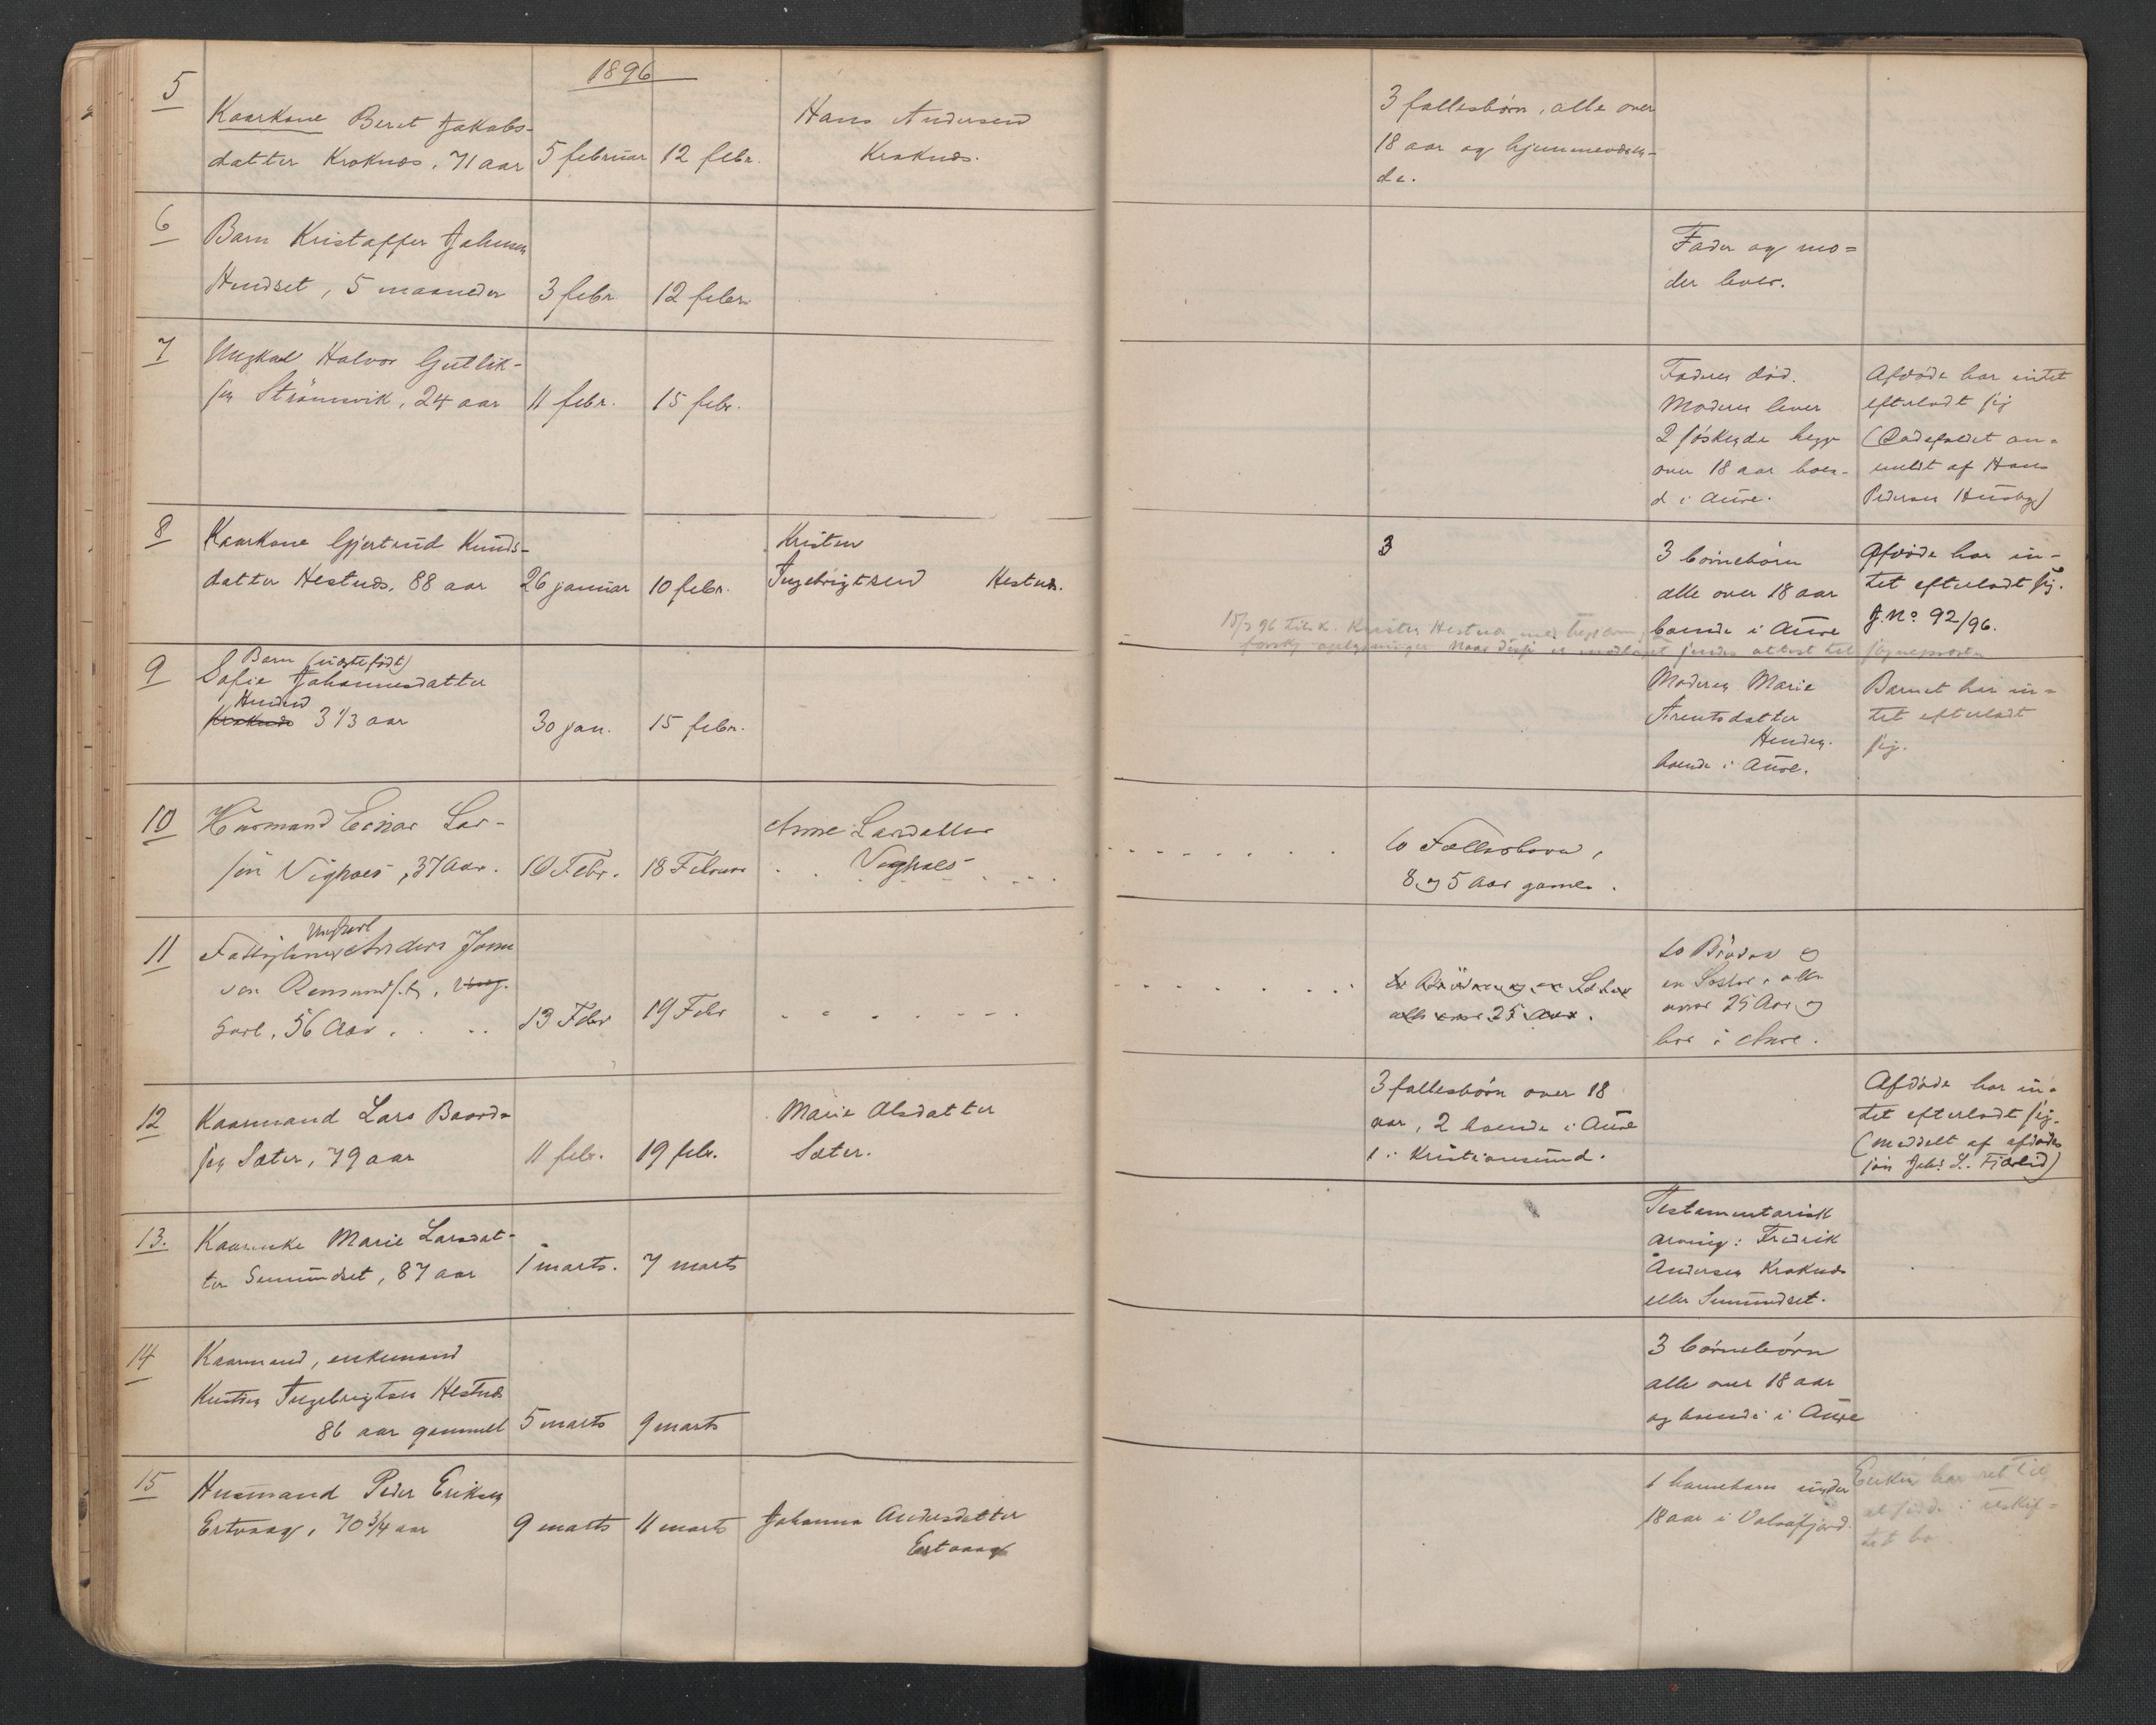 1896
5
Kaarkone Beret Jakobs-
datter Kroknes, 71 aar
5 februar
12 febr.
Hans Andersen
Kroknes.
3 fællesbörn, alle over
18 aar og hjemmeværen-
de.
6
Barn Kristoffer Johnsen
Hendset, 5 maaneder
3 febr.
12 febr.
Fader og mo=
der lever.
7
Ungkarl Halvor Gutlik-
sen Strömsvik, 24 aar
11 febr.
15 febr.
Faderen död.
Moderen lever
2 söskende begge
over 18 aar boen-
d i Aure.
Afdöde har intet
efterladt sig
(Dödsfaldet an-
meldt af Hans
Pedersen Husby)
8
Kaarkone Gjertrud Knuds-
datter Hestnes, 88 aar
26 januar
10 febr.
Kristen
Ingebrigtsen Hestnes.
3
3 börnebörn
alle over 18 aar
boende i Aure
Afdöde har in-
tet efterladt sig.
J. No. 92/96.
96 Kristen Hestnes med
oplysninger Naar er modtaget attest til
9
Barn (uægte födt)
Sofie Johannesdatter
Henden
Kroknes 3 1/3 aar
30 jan.
15 febr.
Moderen Marie
Arentsdatter
Henden.
boende i Aure.
Barnet har in=
tet efterladt
sig.
10
Husmand Einar Lar-
sen Vighals, 37 Aar.
10 Febr.
18 Februar
Anne Larsdatter
Vighals
to Fællesbörn,
8 og 5 Aar gamle.
11
Ungkarl
Fattiglem Anders Johan
sen Remmendset, Ung-
karl, 56 Aar.
13 Febr
19 Febr
to Brödre og en Söster
alle over 25 Aar.
to Brödre og
en Söster, alle
over 25 Aar og
bor i Aure.
12
Kaarmand Lars Baards-
sen Sæter, 79 aar
11 febr.
19 febr.
Marie Olsdatter
Sæter.
3 fællesbörn over 18
aar, 2 boende i Aure
1 i Kristiansund.
Afdöde har in-
tet efterladt sig.
(meddelt af afdödes
sön Johs L. Fjærlid)
13.
Kaarenke Marie Larsdat-
ter Semundset, 87 aar
1 marts.
7 marts
Testamentarisk
arving: Fredrik
Andersen Kroknes
eller Semundset.
14
Kaarmand, enkemand
Kristen Ingebrigtsen Hestnes
86 aar gammel
5 marts
9 marts
3 börnebörn
alle over 18 aar
og boende i Aure
15
Husmand Peder Eriksen
Ertvaag, 70 3/4 aar
9 marts
11 marts
Johanna Andersdatter
Ertvaag
1 barnebarn under
18 aar i Valsöfjord.
Enken har ret til
at sidde i uskif=
tet bo.